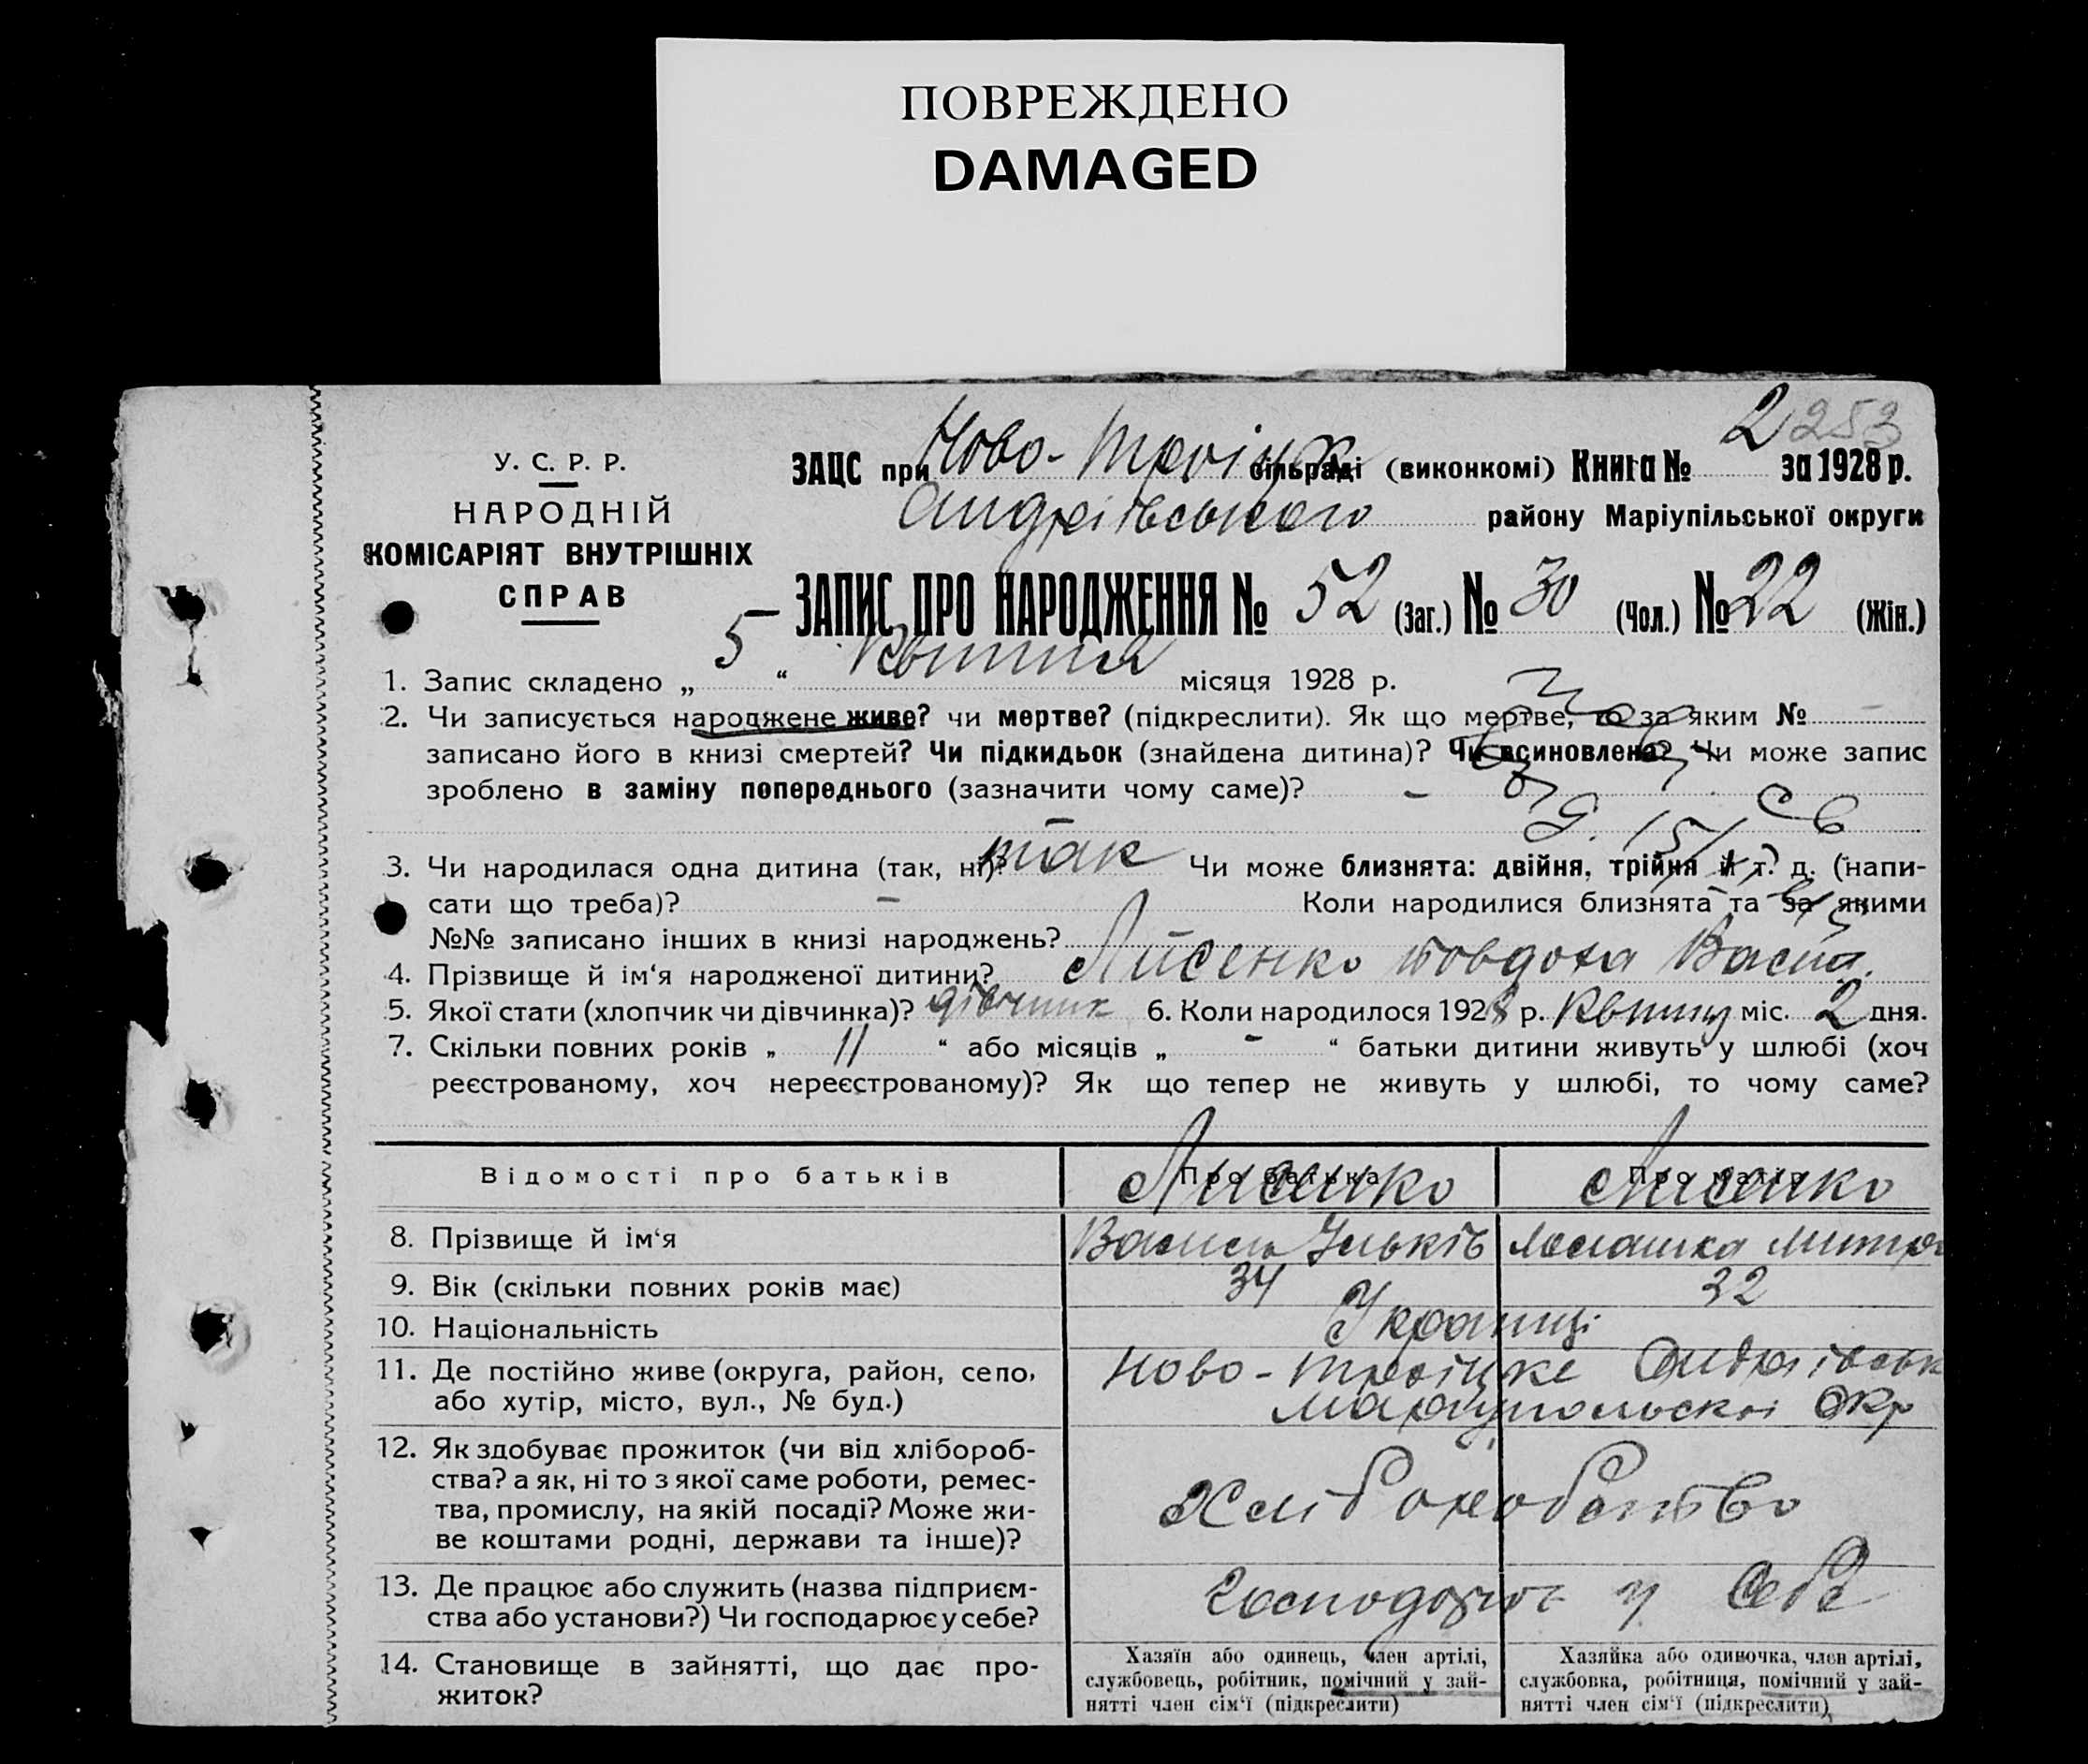 ПОВРЕЖДЕНО
DAMAGED
2 253
У. С. Р. Р.
НАРОДНІЙ
КОМІСАРІЯТ ВНУТРІШНІХ
СПРАВ
ЗАЦС при Ново-Троіцк сільраді (виконкомі) Книга № за 1928 р.
Андріівського району Маріупільської округи
ЗАПИС ПРО НАРОДЖЕННЯ № 52 (Заг.) № 30 (Чол.) № 22 (Жін.)
1. Запис складено „ 5 “ Квітня місяця 1928 р.
2. Чи записується народжене живе? чи мертве? (підкреслити). Як що мертве, то за яким № –
записано його в книзі смертей? Чи підкидьок (знайдена дитина)? Чи всиновлена? Чи може запис
зроблено в заміну попереднього (зазначити чому саме)? –
3. Чи народилася одна дитина (так, ні)? так Чи може близнята: двійня, трійня й т. д. (напи-
сати що треба)? – Коли народилися близнята та за якими
№№ записано інших в книзі народжень?
4. Прізвище й ім‘я народженої дитини? Лисенко Товдоха Васил.
5. Якої стати (хлопчик чи дівчинка)? дівчинк 6. Коли народилося 1928 р. Квітня міс. 2 дня.
7. Скільки повних років „ 11 “ або місяців „ - “ батьки дитини живуть у шлюбі (хоч
реєстрованому, хоч нереєстрованому)? Як що тепер не живуть у шлюбі, то чому саме?
Відомості про батьків Про батька Про матір
Лисенко Лисенко
8. Прізвище й ім‘я Василь Ільків Меланка Митро
9. Вік (скільки повних років має) 34 32
10. Національність Українці
11. Де постійно живе (округа, район, село, Ново-Троіцке Андріівськ
або хутір, місто, вул., № буд.) Маріупольскоі Окр
12. Як здобуває прожиток (чи від хлібороб-
ства? а як, ні то з якої саме роботи, ремес-
тва, промислу, на якій посаді? Може жи-
ве коштами родні, держави та інше)? Хліборобство
13. Де працює або служить (назва підприєм-
ства або установи?) Чи господарює у себе? у себе
14. Становище в зайнятті, що дає про-
житок?
Хазяїн або одинець, член артілі,
службовець, робітник, помічний у зай-
нятті член сім‘ї (підкреслити)
Хазяйка або одиночка, член артілі,
службовка, робітниця, помічний у зай-
нятті член сім‘ї (підкреслити)